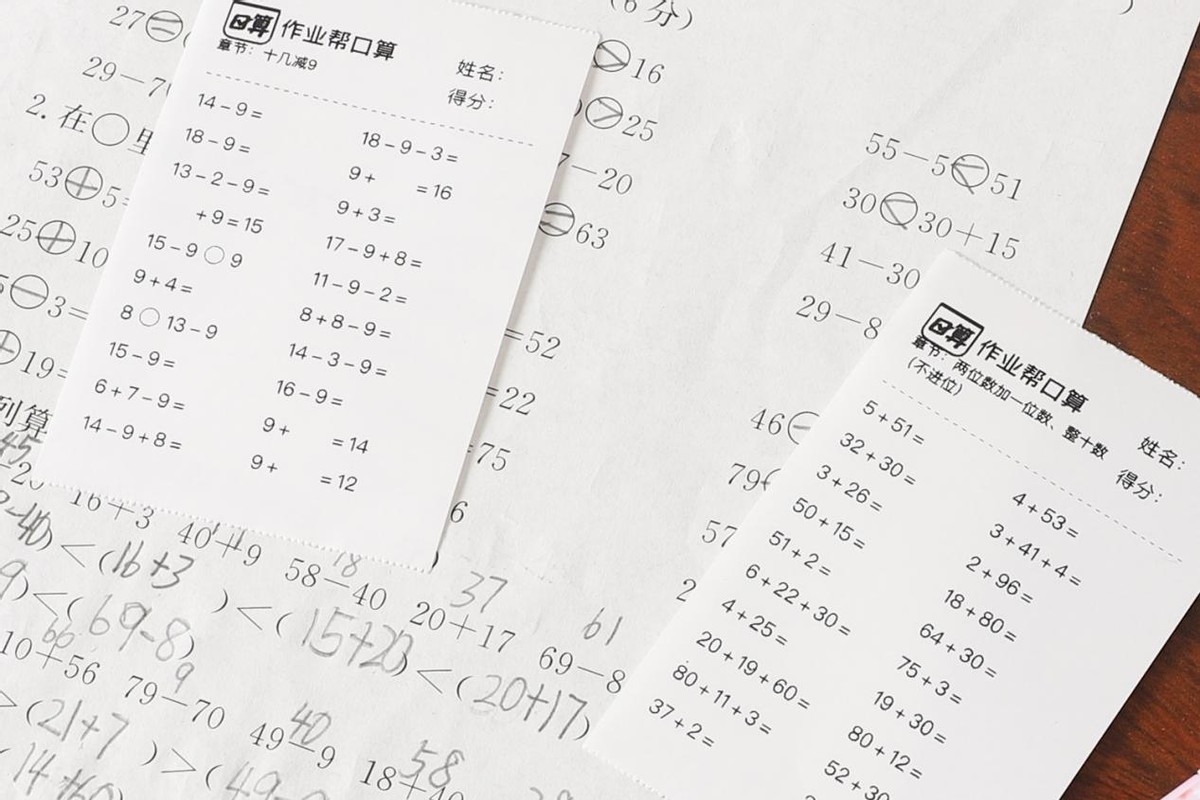 口算 作业帮口算
章节：十几减9
姓名：
得分：
14-9=
18-9=
13-2-9=
+9=15
15-9○9
9+4=
8○13-9
15-9=
6+7-9=
14-9+8=
18-9-3=
9+ =16
9+3=
17-9+8=
11-9-2=
8+8-9=
14-3-9=
16-9=
9+ =14
9+ =12
口算 作业帮口算
章节：两位数加一位数、整十数
(不进位)
姓名：
得分：
5+51=
32+30=
3+26=
50+15=
51+2=
6+22+30=
4+25=
20+19+60=
80+11+3=
37+2=
4+53=
3+41+4=
2+96=
18+80=
64+30=
75+3=
19+30=
80+12=
52+30
(6分)
27=
29-7
2.在○里
53+5=
25+10
3=
19=
列算
>16
>25
-20
=63
=52
=22
=75
6
55-5<51
30<30+15
41-30
29-8
46
79
57
2
45 18 37 61
16+3 40+9 58-40 20+17 69-8
<(16+3 )<(15+20)<(20+17)
)<(69-8)
66 9 40 58
10+56 79-70 49-9 18+40
>(21+7 )>(49-9
14+60